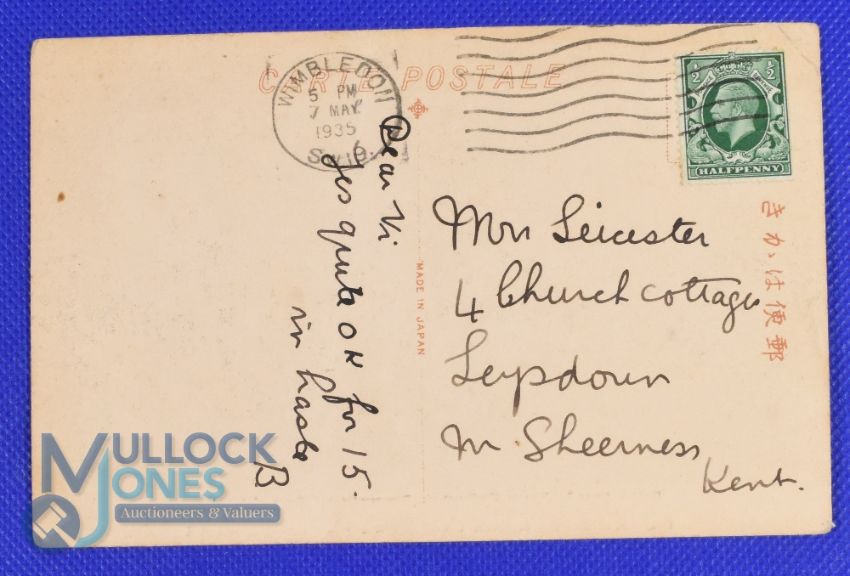 CARTE POSTALE
WIMBLEDON
5 PM
7 MAY
1935
S.W.19.
½ ½
HALFPENNY
Dear Vi
Yes quite OK for 15.
in haste
B
MADE IN JAPAN
Mrs Leicester
4 Church Cottages
Leysdown
Nr Sheerness
Kent.
きかは便郵
MULLOCK
JONES
Auctioneers & Valuers